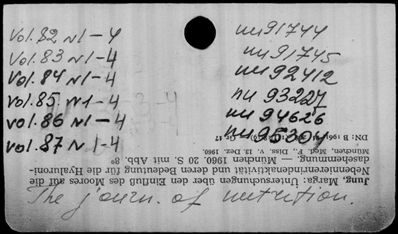 Vol. 82 N1-4 nu 91744
Vol. 83 N1-4 nu 91745
Vol. 84 N1-4 nu 92412
Vol. 85. N1-4 nu 93227
Vol. 86 N1-4 nu 94626
Vol. 87 N1-4 nu 95304
The journ. of nutrition.
Jung, Marga: Untersuchungen über den Einfluß des Moores auf die
Nebennierenrindenaktivität und deren Bedeutung für die Hyaluroni-
dasehemmung. — München 1960. 20 S. mit Abb. 8°
München, Med. F., Diss. v. 13. Dez. 1960.